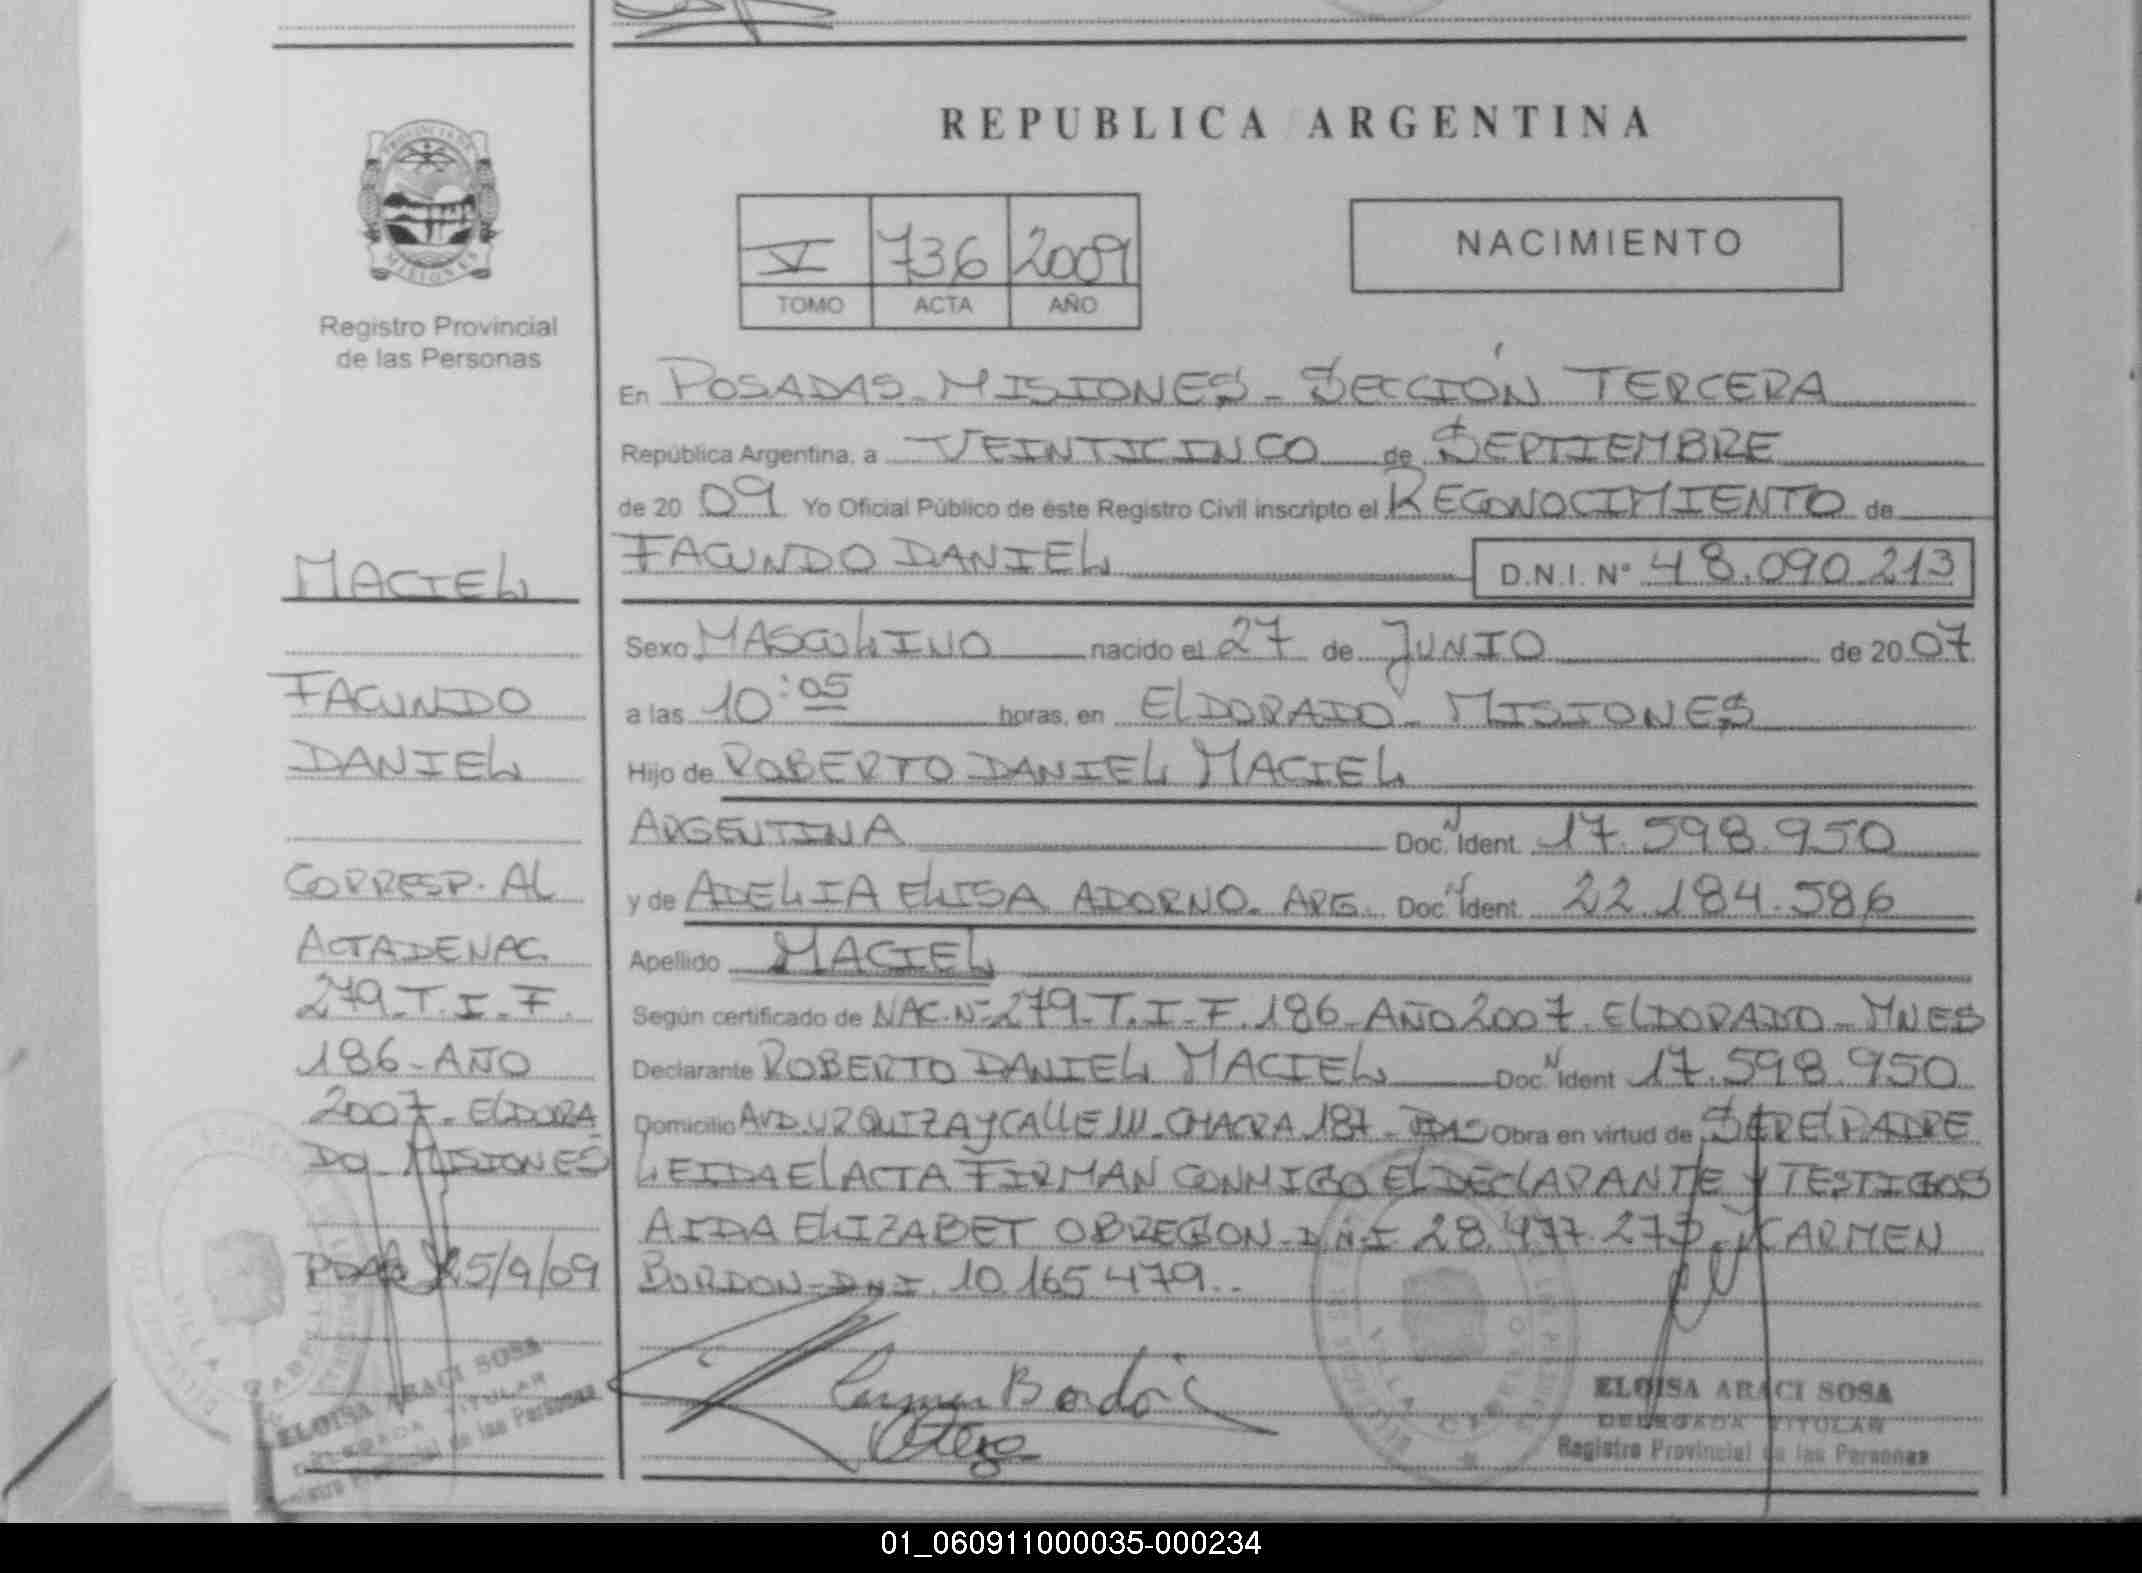 REPUBLICA ARGENTINA
PROVINCIA DE
MISIONES
Registro Provincial
de las Personas
V 736 2009
TOMO ACTA AÑO
NACIMIENTO
En POSADAS - MISIONES - SECCIÓN TERCERA
República Argentina, a VEINTICINCO de SEPTIEMBRE
de 2009 Yo Oficial Público de éste Registro Civil inscripto el RECONOCIMIENTO de
FACUNDO DANIEL D.N.I. Nº 48.090.213
Sexo MASCULINO nacido el 27 de JUNIO de 2007
a las 10:05 horas, en ELDORADO - MISIONES
Hijo de ROBERTO DANIEL MACIEL
ARGENTINA Doc. N Ident. 17.598.950
y de ADELIA ELISA ADORNO. ARG. Doc. N Ident. 22.184.586
Apellido MACIEL
Según certificado de NAC. Nº 279-T.I-F.186-AÑO 2007. ELDORADO - MNES
Declarante ROBERTO DANIEL MACIEL Doc. N Ident 17.598.950
Domicilio AVD. UZQUIZA Y CALLE 111 - CHACRA 187 - PDAS Obra en virtud de SER EL PADRE
LEIDA EL ACTA FIRMAN CONMIGO EL DECLARANTE Y TESTIGOS
AIDA ELIZABET OBREGON - DNI 28.477.273 - Y CARMEN
BORDON - DNI. 10.165.479..
MACIEL
FACUNDO
DANIEL
CORRESP. AL
ACTA DE NAC.
279-T.I-F.
186-AÑO
2007-ELDORA
DO-MISIONES
PDAS 25/9/09
ELOISA ARACI SOSA
DELEGADA TITULAR
Registro Provincial de las Personas
Carmen Bordón
ELOISA ARACI SOSA
DELEGADA TITULAR
Registro Provincial de las Personas
01_060911000035-000234